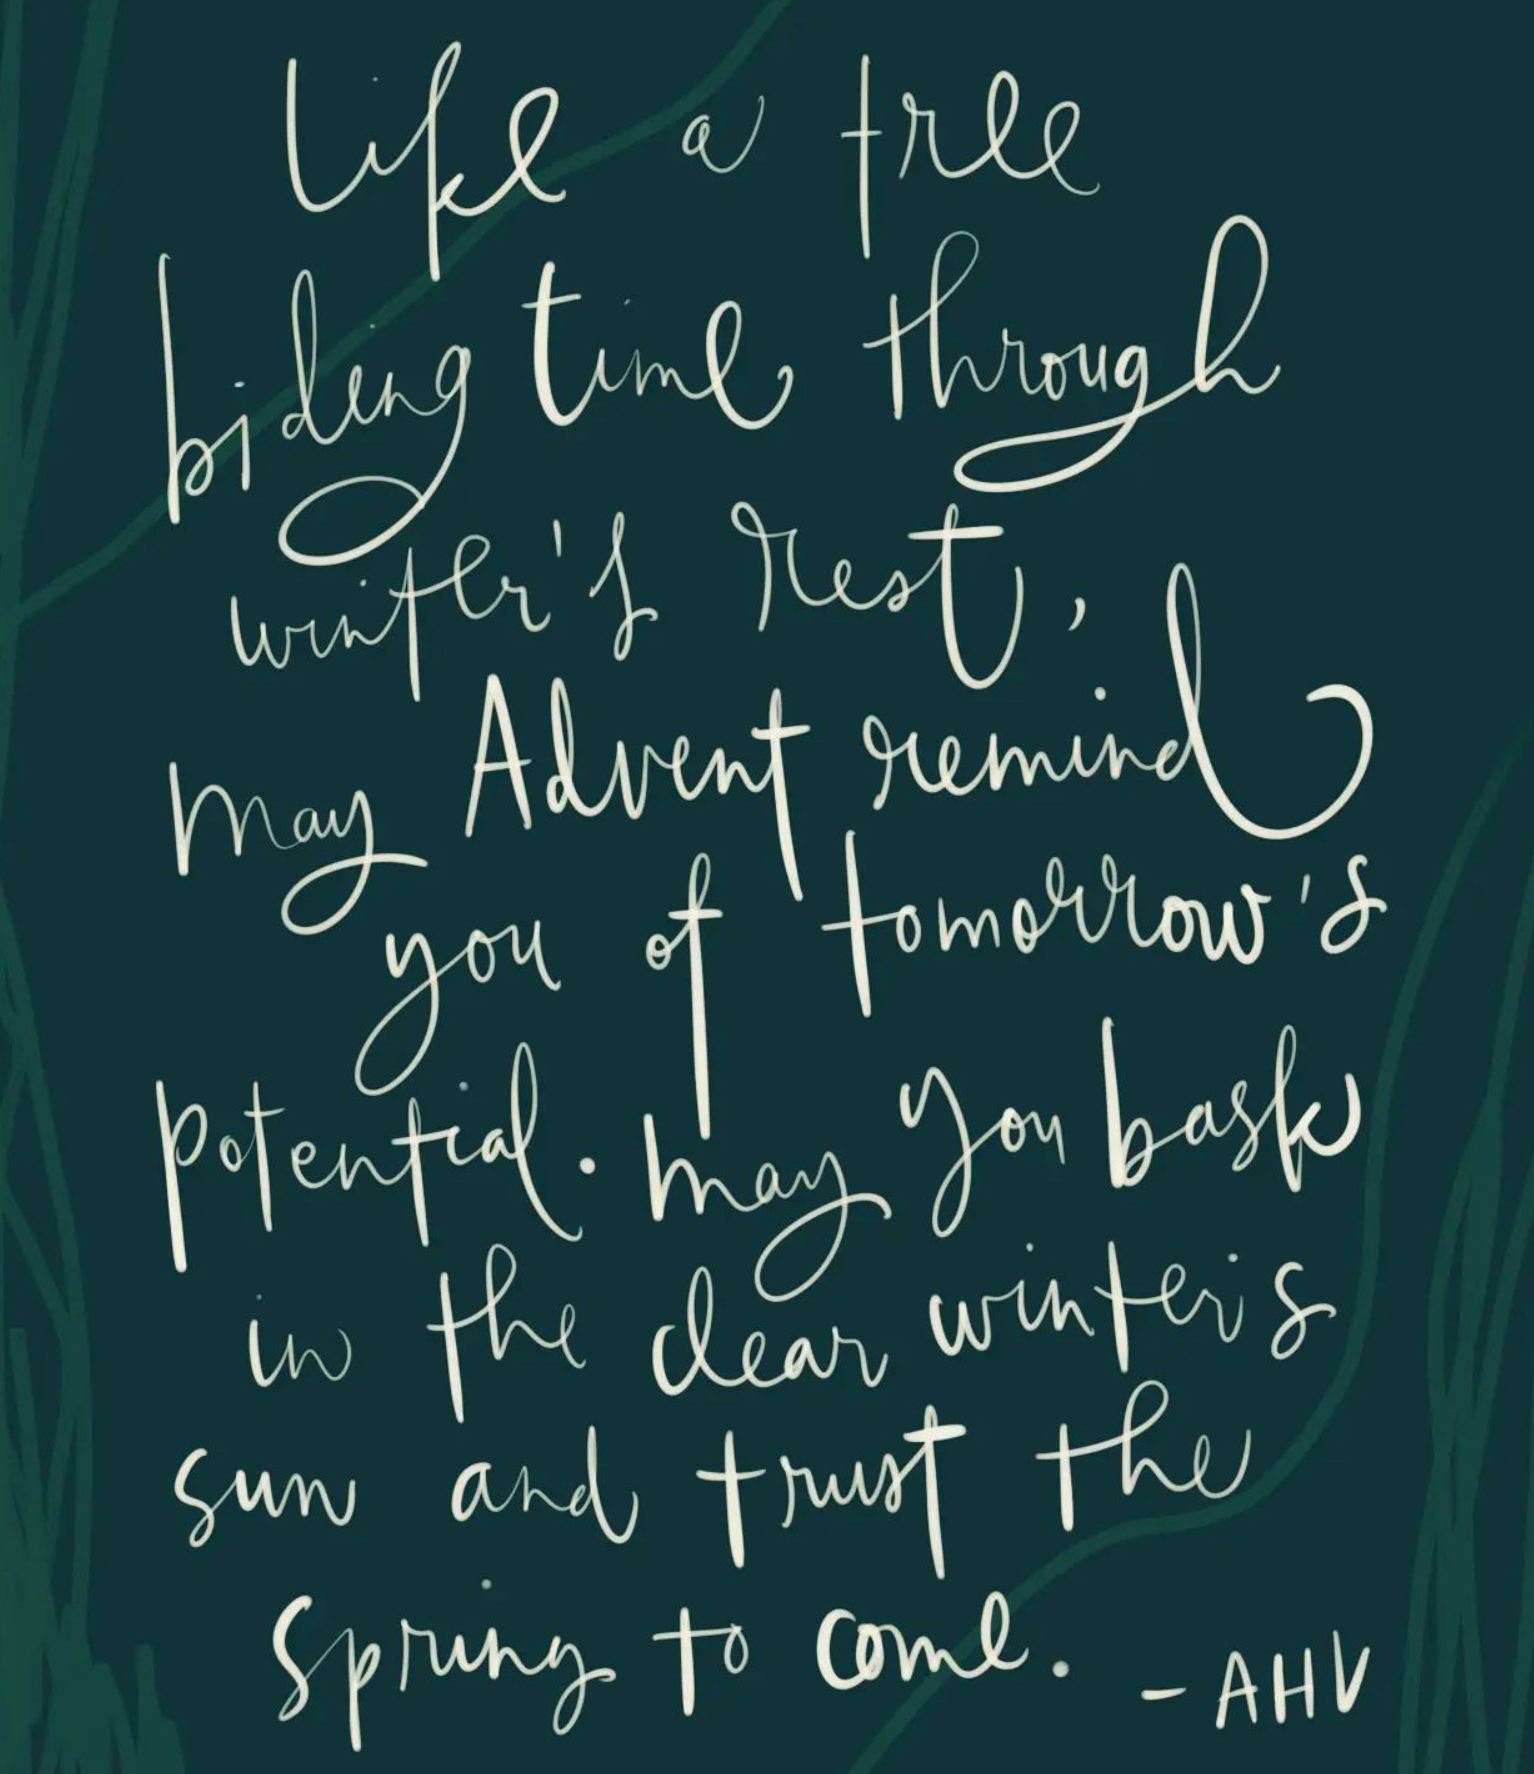 like a tree
biding time through
winter's rest,
may Advent remind
you of tomorrow's
potential. may you bask
in the clear winter's
sun and trust the
spring to come. -AHV